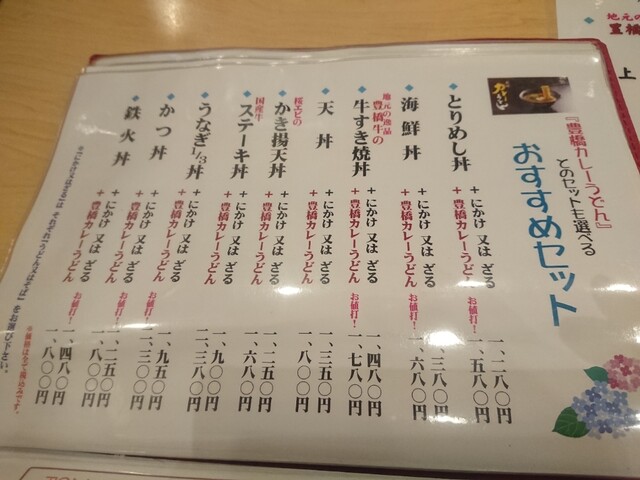 『豊橋カレーうどん』
とのセットも選べる
おすすめセット
とりめし丼 + にかけ 又は ざる 一、二八〇円
+ 豊橋カレーうどん お値打! 一、五八〇円
海鮮丼 + にかけ 又は ざる 一、三八〇円
+ 豊橋カレーうどん お値打! 一、六八〇円
地元の逸品
豊橋牛の
牛すき焼丼 + にかけ 又は ざる 一、四八〇円
+ 豊橋カレーうどん お値打! 一、七八〇円
天丼 + にかけ 又は ざる 一、三五〇円
+ 豊橋カレーうどん 一、八〇〇円
桜エビの
かき揚天丼 + にかけ 又は ざる 一、二五〇円
+ 豊橋カレーうどん 一、六八〇円
国産牛
ステーキ丼 + にかけ 又は ざる 一、九〇〇円
+ 豊橋カレーうどん 二、三八〇円
うなぎ1/3丼 + にかけ 又は ざる 一、九五〇円
+ 豊橋カレーうどん お値打! 二、三〇〇円
かつ丼 + にかけ 又は ざる 一、二五〇円
+ 豊橋カレーうどん お値打! 一、八〇〇円
鉄火丼 + にかけ 又は ざる 一、四八〇円
+ 豊橋カレーうどん お値打! 一、八〇〇円
※「にかけ又はざる」は それぞれ「うどん又はそば」をお選び下さい。
※価格は全て税込みです。
地元の
豊橋
上